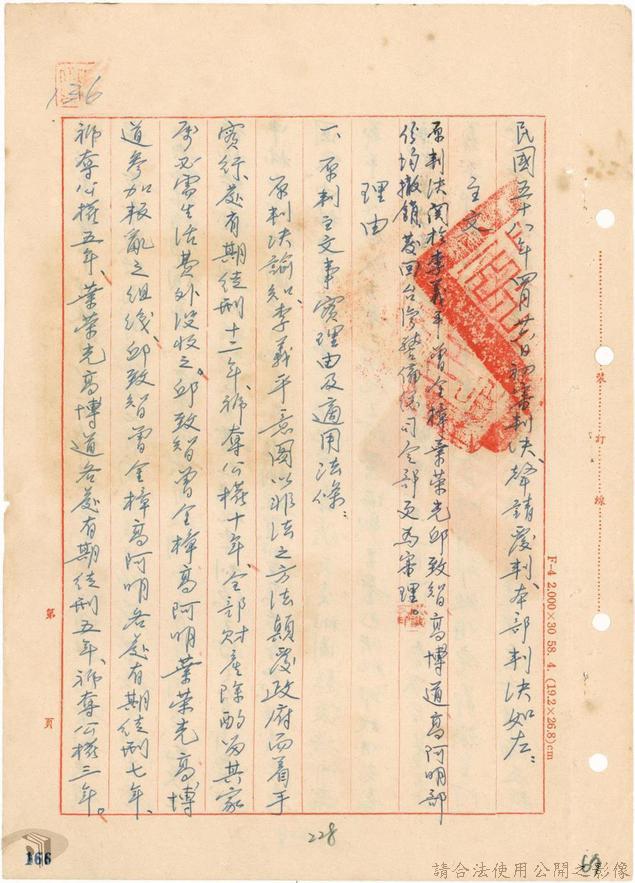 民國五十八年四月廿六日初審判決、聲請覆判、本部判決如左：
主文
原判決關於李義平曾金樟葉榮光邱致智高博道高阿明部
份均撤銷發回台灣警備總司令部更為審理。
理由
一、原判主文事實理由及適用法條：
原判決諭知李義平意圖以非法之方法顛覆政府而着手
實行、處有期徒刑十二年、褫奪公權十年、全部財產除酌留其家
屬必需生活費外沒收之。邱致智曾金樟高阿明葉榮光高博
道參加叛亂之組織、邱致智曾金樟高阿明各處有期徒刑七年、
褫奪公權五年、葉榮光高博道各處有期徒刑五年、褫奪公權三年。
第 頁
裝 訂 線
F-4 2,000×30 58. 4. (19.2×26.8)cm
136
228
166
請合法使用公開之影像